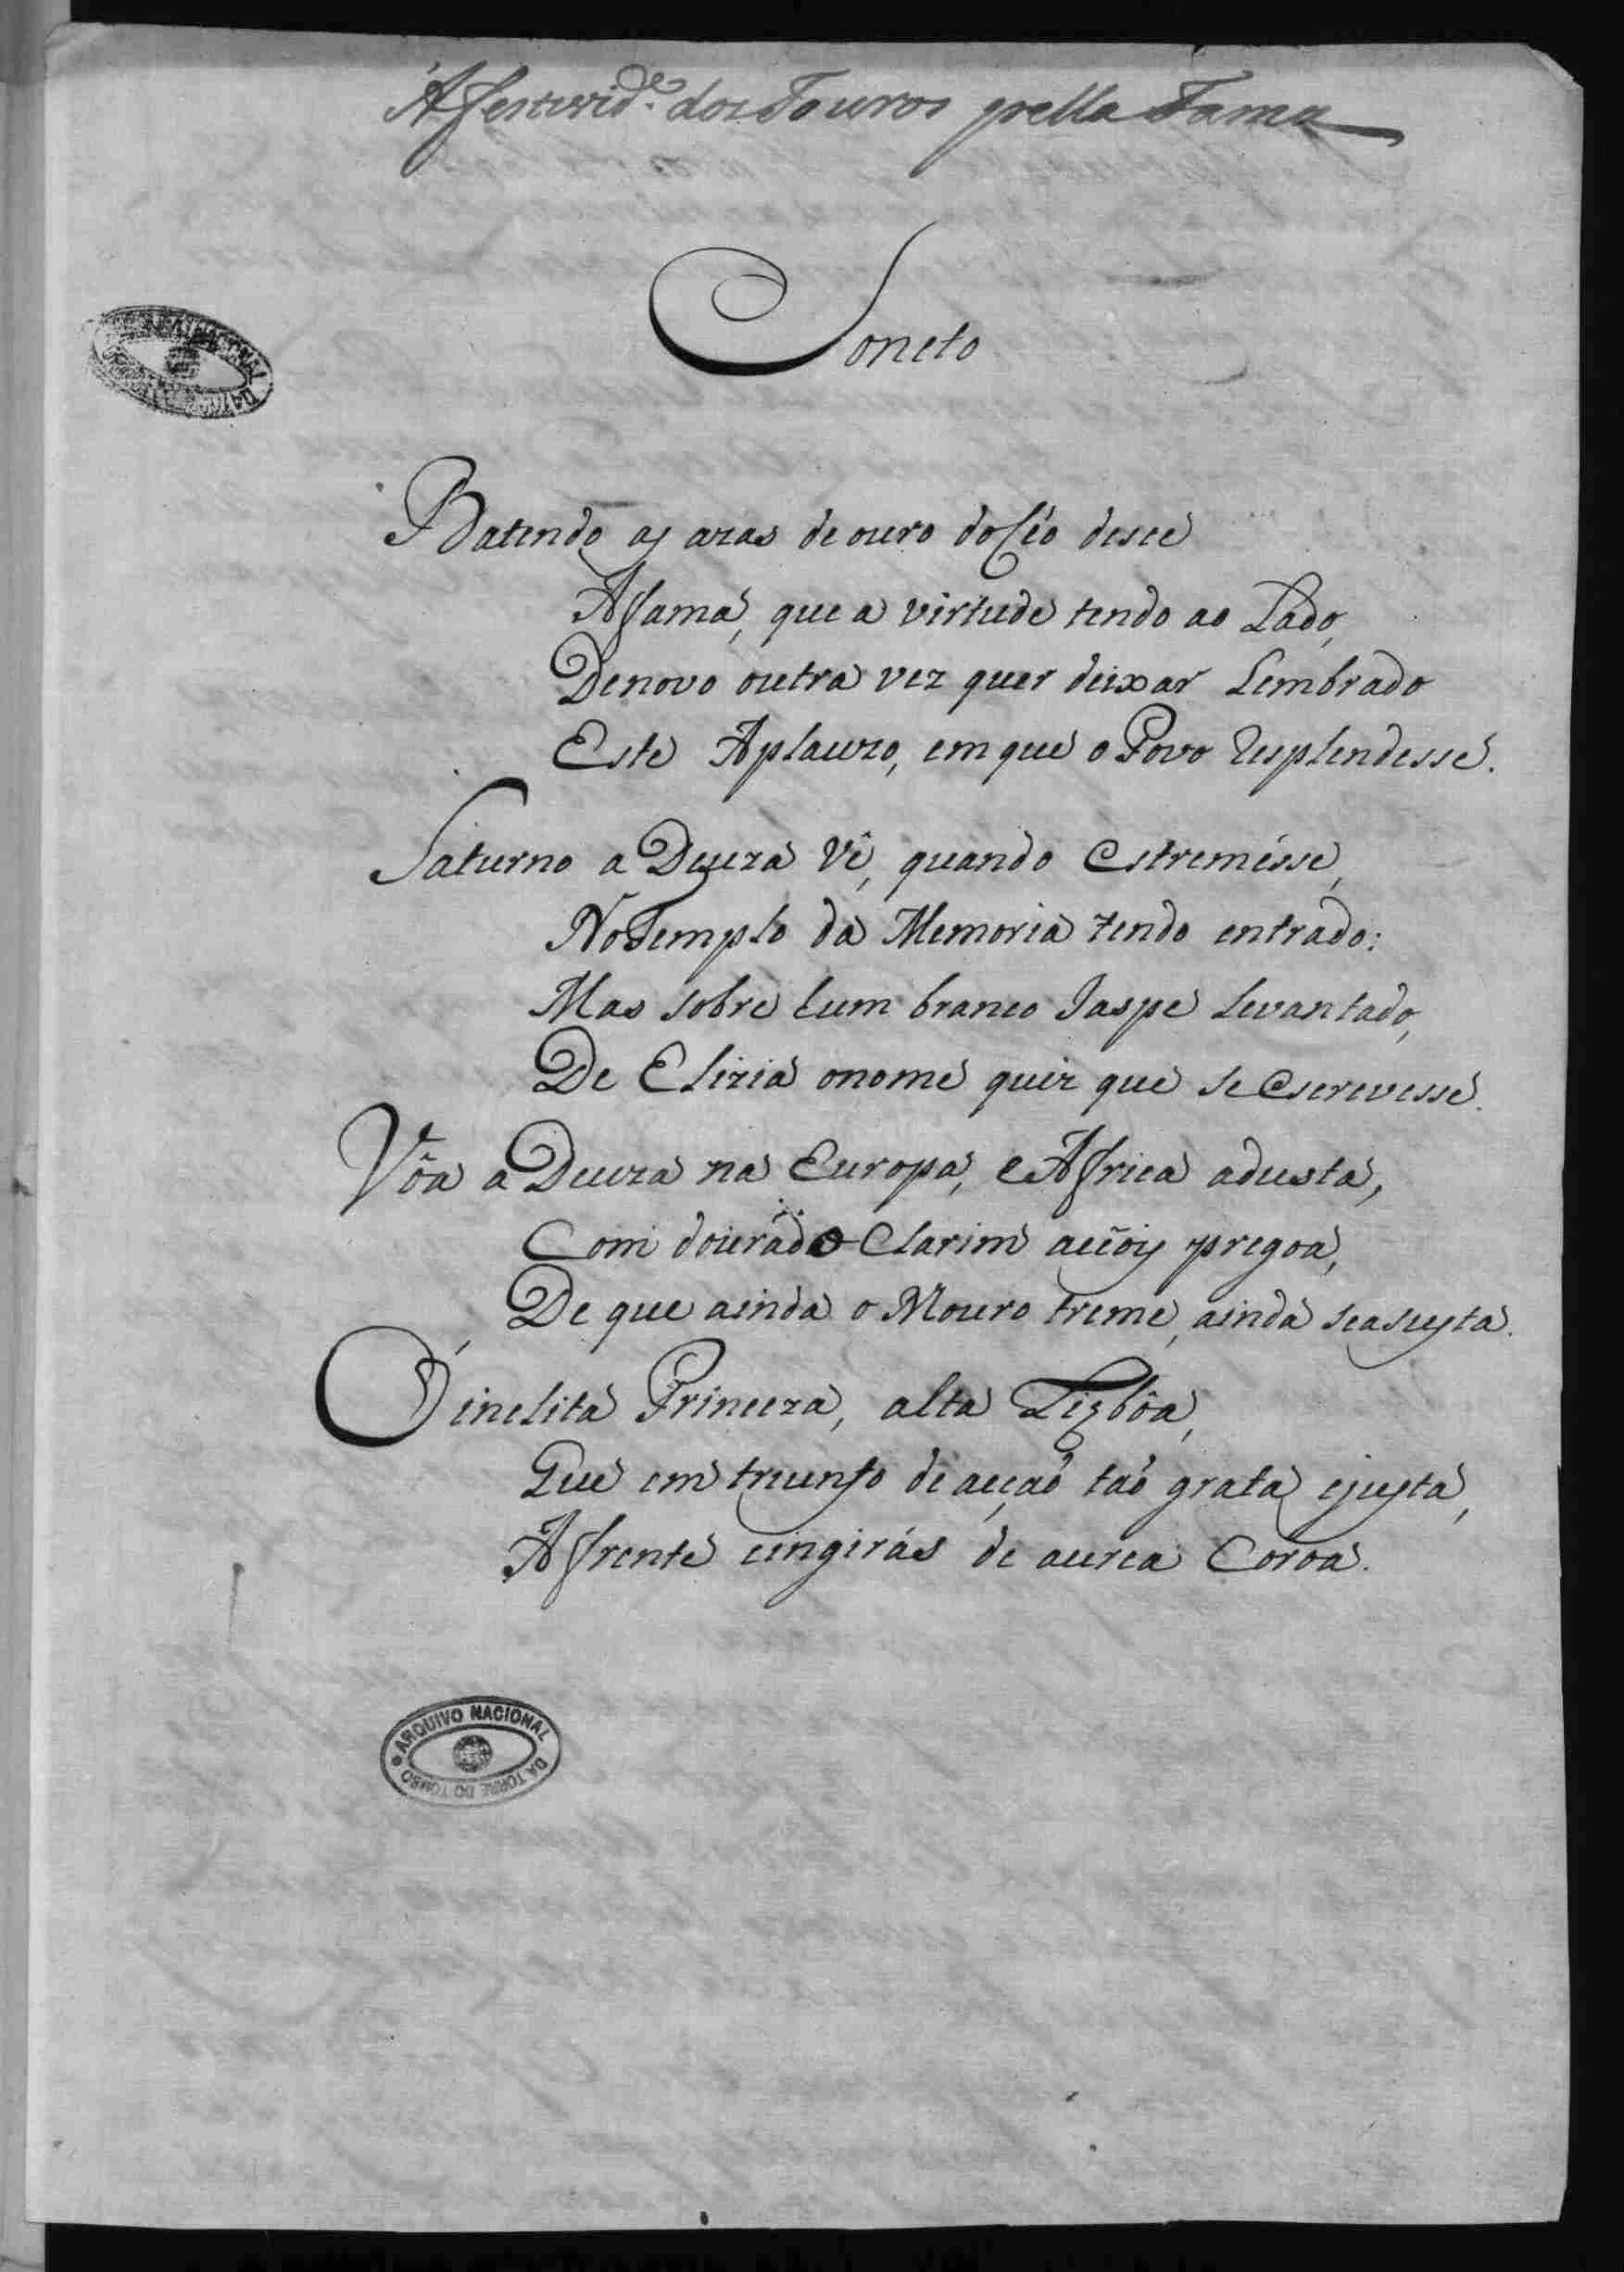 Á festivid.e dos Touros pella Fama
Soneto
ARQUIVO NACIONAL DA TORRE DO TOMBO
Batendo as azas de ouro do Céo desce
A fama, que a virtude tendo ao Lado,
De novo outra vez quer deixar Lembrado
Este Aplauzo, em que o Povo Resplendesse.
Saturno a Deuza Vê, quando estremésse,
No Templo da Memoria tendo entrado:
Mas sobre hum branco Jaspe Levantado,
De Elizia o nome quiz que se escrevesse.
Vôa a Deuza na Europa, e Africa adusta,
Com dourado Clarim acçõis pregoa,
De que ainda o Mouro treme, ainda se asusta.
Ó inclita Princeza, alta Lizbôa,
Que em triunfo de acçaõ taõ grata e justa,
A frente cingirás de aurea Coroa.
ARQUIVO NACIONAL DA TORRE DO TOMBO